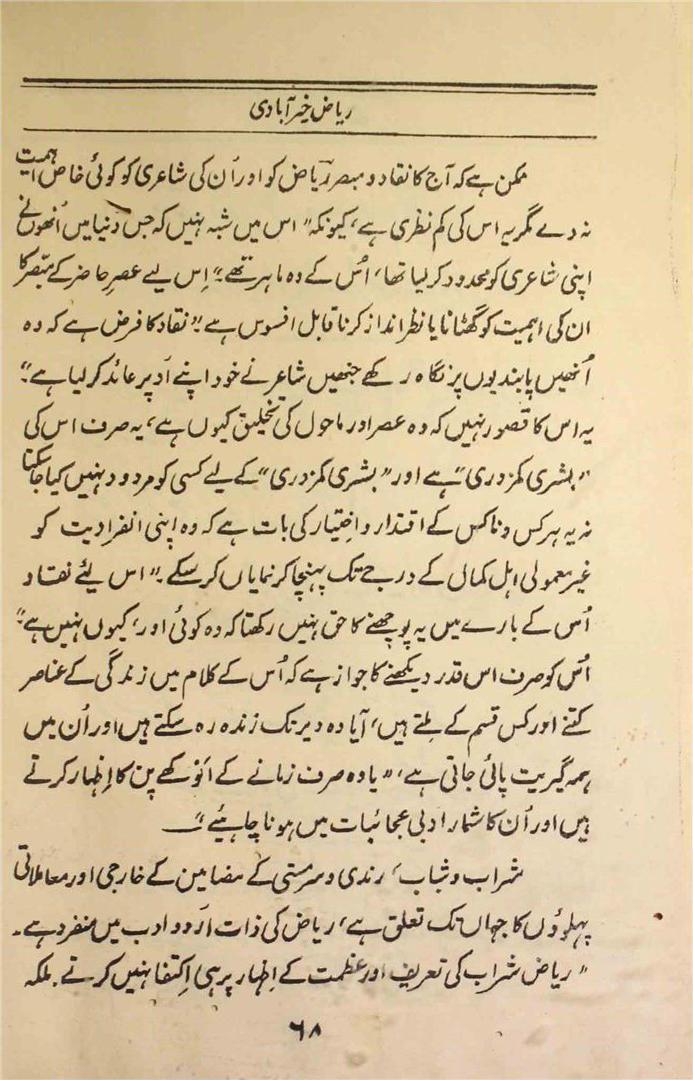 ریاض خیرآبادی
ممکن ہے کہ آج کا نقاد و مبصر ریاض کو اور اُن کی شاعری کو کوئی خاص اہمیت
نہ دے مگر یہ اس کی کم نظری ہے، کیونکہ "اس میں شبہ نہیں کہ جس دنیا میں اُنھوں نے
اپنی شاعری کو محدود کر لیا تھا، اُس کے وہ ماہر تھے"۔ اِس لیے عصرِ حاضر کے مبصّر کا
ان کی اہمیت کو گھٹانا یا نظرانداز کرنا قابل افسوس ہے "نقاد کا فرض ہے کہ وہ
اُنھیں پابندیوں پر نگاہ رکھے جنھیں شاعر نے خود اپنے اُوپر عائد کر لیا ہے"۔
یہ اس کا قصور نہیں کہ وہ عصر اور ماحول کی تخلیق کیوں ہے، یہ صرف اس کی
"بشری کمزوری" ہے اور "بشری کمزوری" کے لیے کسی کو مردود نہیں کیا جا سکتا
نہ یہ ہر کس و ناکس کے اقتدار و اختیار کی بات ہے کہ وہ اپنی انفرادیت کو
غیر معمولی اہل کمال کے درجے تک پہنچا کر نمایاں کر سکے۔" اس لیٔے نقاد
اُس کے بارے میں یہ پوچھنے کا حق نہیں رکھتا کہ وہ کوئی اور، کیوں نہیں ہے"۔
اُس کو صرف اس قدر دیکھنے کا جواز ہے کہ اُس کے کلام میں زندگی کے عناصر
کتنے اور کس قسم کے ملتے ہیں، آیا وہ دیر تک زندہ رہ سکتے ہیں اور اُن میں
ہمہ گیریت پائی جاتی ہے، "یا وہ صرف زمانے کے انوکھے پن کا اِظہار کرتے
ہیں اور اُن کا شمار ادبی عجائبات میں ہونا چاہیٔے"۔
شراب و شباب، رندی و سرمستی کے مضامین کے خارجی اور معاملاتی
پہلوؤں کا جہاں تک تعلق ہے، ریاض کی ذات اردو ادب میں منفرد ہے۔
"ریاض شراب کی تعریف اور عظمت کے اِظہار پر ہی اِکتفا نہیں کرتے۔ بلکہ
۶۸